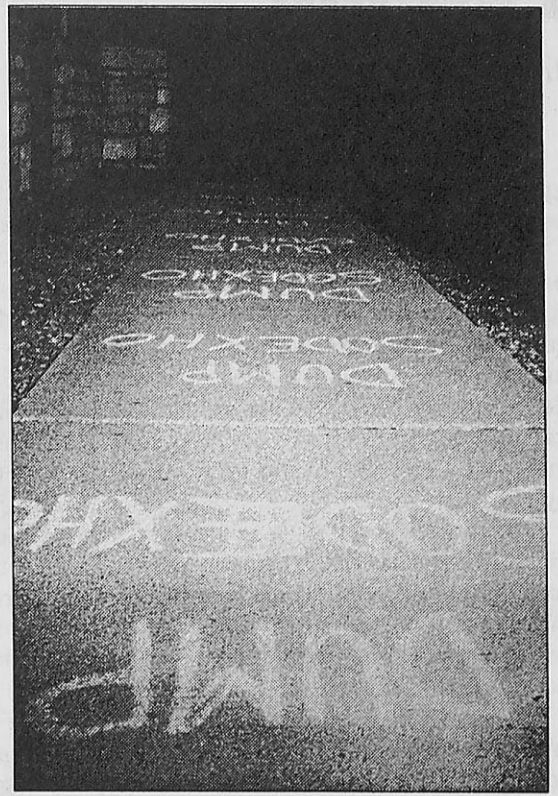 DUMP
SODEXHO
DUMP
SODEXHO
DUMP
SODEXHO
DUMP